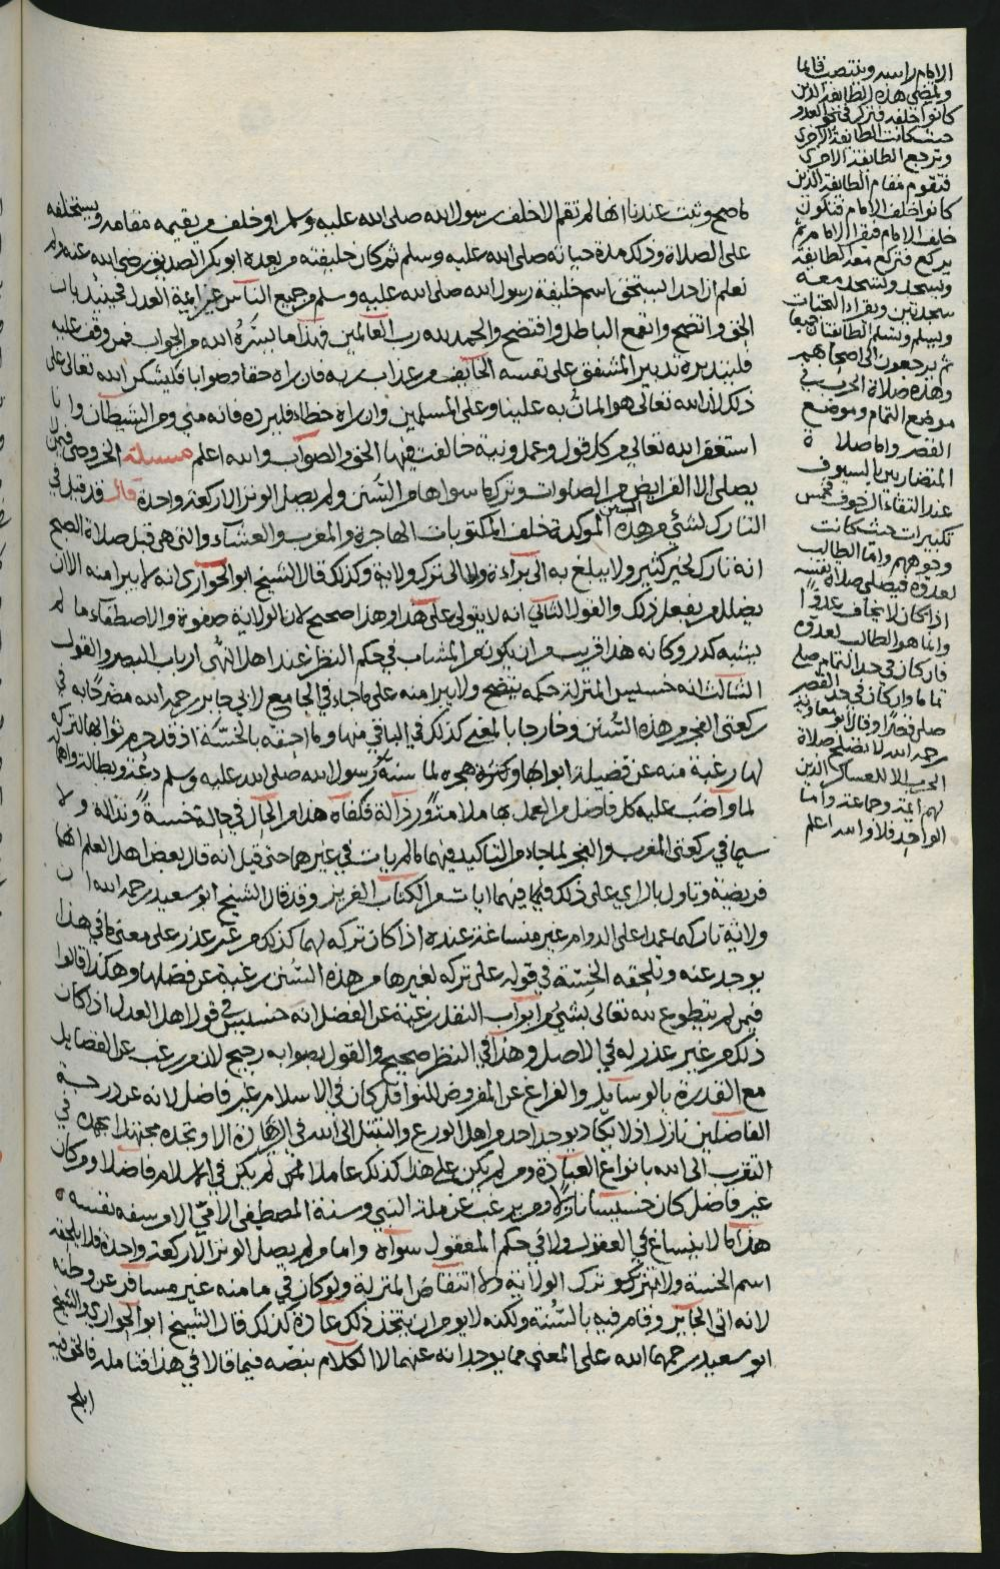 ما صح وثبت عندنا انها لم تقم الا خلف رسول الله صلى الله عليه وسلم او خلف من يقيمه مقامه ويستخلفه
على الصلاة وذلك مدة حياته صلى الله عليه وسلم ثم كان خليفته من بعده ابو بكر الصديق رضي الله عنه ولم
نعلم ان احدا يستحق اسم خليفة رسول الله صلى الله عليه وسلم من جميع الناس غير ايمة العدل فحينئذ بان
الحق واتضح وانقمع الباطل وافتضح والحمد لله رب العالمين فهذا ما يسره الله من الجواب فمن وقف عليه
فليتدبره تدبير المشفق على نفسه الخايف من عذاب ربه فان راه حقا وصوابا فليشكر الله تعالى على
ذلك لان الله تعالى هو المان به علينا وعلى المسلمين وان راه خطاء فليرده فانه مني ومن الشيطان وانا
استغفر الله تعالى من كل قول وعمل ونية خالفت فيها الحق والصواب والله اعلم مسئلة الخروصي فيمن
يصلي الا الفرايض من الصلوات وترك ما سواها من السنن ولم يصل الوتر الا ركعة واحدة قال قد قيل في
التارك لشئ من هذه السنن الموكدة خلف المكتوبات الهاجرة والمغرب والعشاء والتي هي قبل صلاة الصبح
انه تارك لخير كثير ولا يبلغ به الى براءة ولا الى ترك ولاية وكذلك قال الشيخ ابو الحواري انه لا يبرا منه الا ان
يضلل من يفعل ذلك والقول الثاني انه لا يتولى على هذا وهذا صحيح لان الولاية صفوة والاصطفاء ما لم
يشبه كدر وكانه هذا قريب من ان يكون من المشاب في حكم النظر عند اهل النهى ارباب البصر والقول
الثالث انه خسيس المنزلة حكمه يتضح ولا يبرا منه على ما جاء في الجامع لابي جابر رحمه الله مصرحا به في
ركعتي الفجر من هذه السنن وخارجا بالمعنى كذلك في الباقي منها وما احقه بالخسة اذ قد حرم ثوابها لتركه
لها رغبة منه عن فضيلة ابوابها وكثرة هجره لما سنه رسول الله صلى الله عليه وسلم دعة وبطالة واهمالا
لما واضب عليه كل فاضل من العمل بها ملامة ورذالة فكفاه هذا من الحال في حاله خسة ونذالة ولا
سيما في ركعتي المغرب والفجر لما جاء من التاكيد فيهما ما لم يات في غيرهما حتى قيل انه قال بعض اهل العلم انهما
فريضة وتاول بالراي على ذلك فيما فيهما ايات من الكتاب العزيز وقد قال الشيخ ابو سعيد رحمه الله ان
ولاية تاركهما عمدا على الدوام غير منساغة عنده اذا كان تركه لهما كذلك من غير عذر على معنى ما في هذا
يوجد عنه وتلحقه الخسة في قوله على تركه لغيرها من هذه السنن رغبة عن فضلها وهكذا قالوا
فيمن لم يتطوع لله تعالى بشئ من ابواب النفل رغبة عن الفضل انه خسيس في قول اهل العدل اذا كان
ذلك من غير عذر له في الاصل وهذا في النظر صحيح والقول بصوابه رجيح لان من رغب عن الفضايل
مع القدرة بالوسايل والفراغ عن المفروض للنوافل كان في الاسلام غير فاضل لانه عن درجة
الفاضلين نازل اذ لا يكاد يوجد احد من اهل الورع والتبتل الى الله في الزهادة الا وتجده مجتهدا بجهده في
التقرب الى الله بانواع العبادة ومن لم يكن على هذا كذلك عاملا لم يكن في الاسلام فاضلا ومن كان
غير فاضل كان خسيسا نازلا ومن يرغب عن ملة النبي وسنة المصطفى الامي الا من سفه نفسه
هذا ما لا ينساغ في العقول ولا في حكم المعقول سواه واما من لم يصل الوتر الا ركعة واحدة فلا يلحقه
اسم الخسة ولا ترك الولاية ولا انتقاص المنزلة ولو كان في مامنه غير مسافر عن وطنه
لانه اتى الجايز وقام فيه بالسنة ولكنه لا يومر ان يتخذ ذلك عادة كذلك قال الشيخ ابو الحواري والشيخ
ابو سعيد رحمهما الله على المعنى مما يوجد انه عنهما لا الكلام بنصه فيما قالا في هذا فتامله فالحق فيه
ابلج
الامام راسه وينتصب قايما
وتمضي هذه الطايفة الذين
كانوا خلفه فتركز في نحو العدو
حيث كانت الطايفة الاخرى
وترجع الطايفة الاخرى
فتقوم مقام الطايفة الذين
كانوا خلف الامام فتكون
خلف الامام فيقرا الامام ثم
يركع فتركع معه الطايفة
ويسجد وتسجد معه
سجدتين ويقراء التحيات
ويسلم وتسلم الطايفتان جميعا
ثم يرجعون الى اصحابهم
وهذه صلاة الحرب في
موضع التمام وموضع
القصر واما صلاة
المتضاربين بالسيوف
عند التقاء الزحوف خمس
تكبيرات حيث كانت
وجوههم واما الطالب
لعدوه فيصلي صلاة نفسه
اذا كان لا يخاف عدوا
وانما هو الطالب لعدوه
فان كان في حد التمام صلى
تماما وان كان في حد القصر
صلى قصرا وقال ابو معاوية
رحمه الله لا تصلح صلاة
الحرب الا للعساكر الذين
لهم ايمة وجماعة واما
الواحد فلا والله اعلم